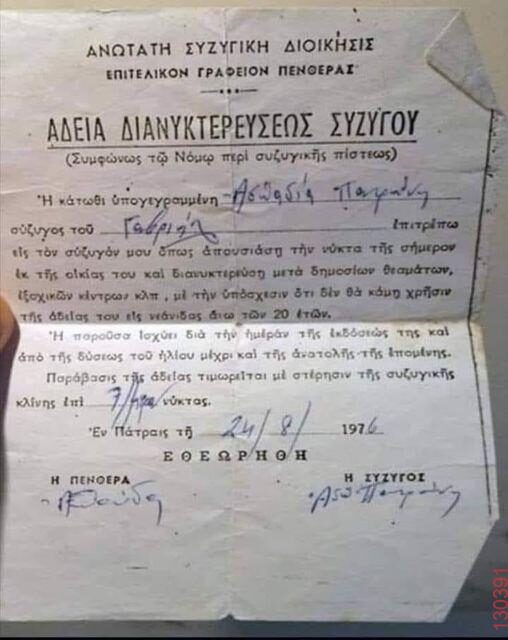 ΑΝΩΤΑΤΗ ΣΥΖΥΓΙΚΗ ΔΙΟΙΚΗΣΙΣ
ΕΠΙΤΕΛΙΚΟΝ ΓΡΑΦΕΙΟΝ ΠΕΝΘΕΡΑΣ
ΑΔΕΙΑ ΔΙΑΝΥΚΤΕΡΕΥΣΕΩΣ ΣΥΖΥΓΟΥ
(Συμφώνως τῷ Νόμῳ περὶ συζυγικῆς πίστεως)
Ἡ κάτωθι ὑπογεγραμμένη Ασπασία
σύζυγος τοῦ Γαβριήλ ἐπιτρέπω
εἰς τὸν σύζυγόν μου ὅπως ἀπουσιάσῃ τὴν νύκτα τῆς σήμερον
ἐκ τῆς οἰκίας του καὶ διανυκτερεύσῃ μετὰ δημοσίων θεαμάτων,
ἐξοχικῶν κέντρων κλπ, μὲ τὴν ὑπόσχεσιν ὅτι δὲν θὰ κάμῃ χρῆσιν
τῆς ἀδείας του εἰς νεάνιδας ἄνω τῶν 20 ἐτῶν.
Ἡ παροῦσα ἰσχύει διὰ τὴν ἡμέραν τῆς ἐκδόσεώς της καὶ
ἀπὸ τῆς δύσεως τοῦ ἡλίου μέχρι καὶ τῆς ἀνατολῆς τῆς ἑπομένης.
Παράβασις τῆς ἀδείας τιμωρεῖται μὲ στέρησιν τῆς συζυγικῆς
κλίνης ἐπὶ νύκτας.
Ἐν Πάτραις τῇ 24/8/1976
ΕΘΕΩΡΗΘΗ
Η ΠΕΝΘΕΡΑ Η ΣΥΖΥΓΟΣ
130391